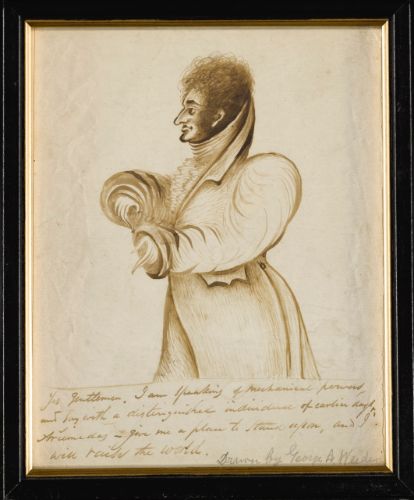 Yes Gentlemen, I am speaking of mechanical powers
and say with a distinguished individual of earlier days
Archimedes give me a place to stand upon, and I
will raise the world.
Drawn by George A